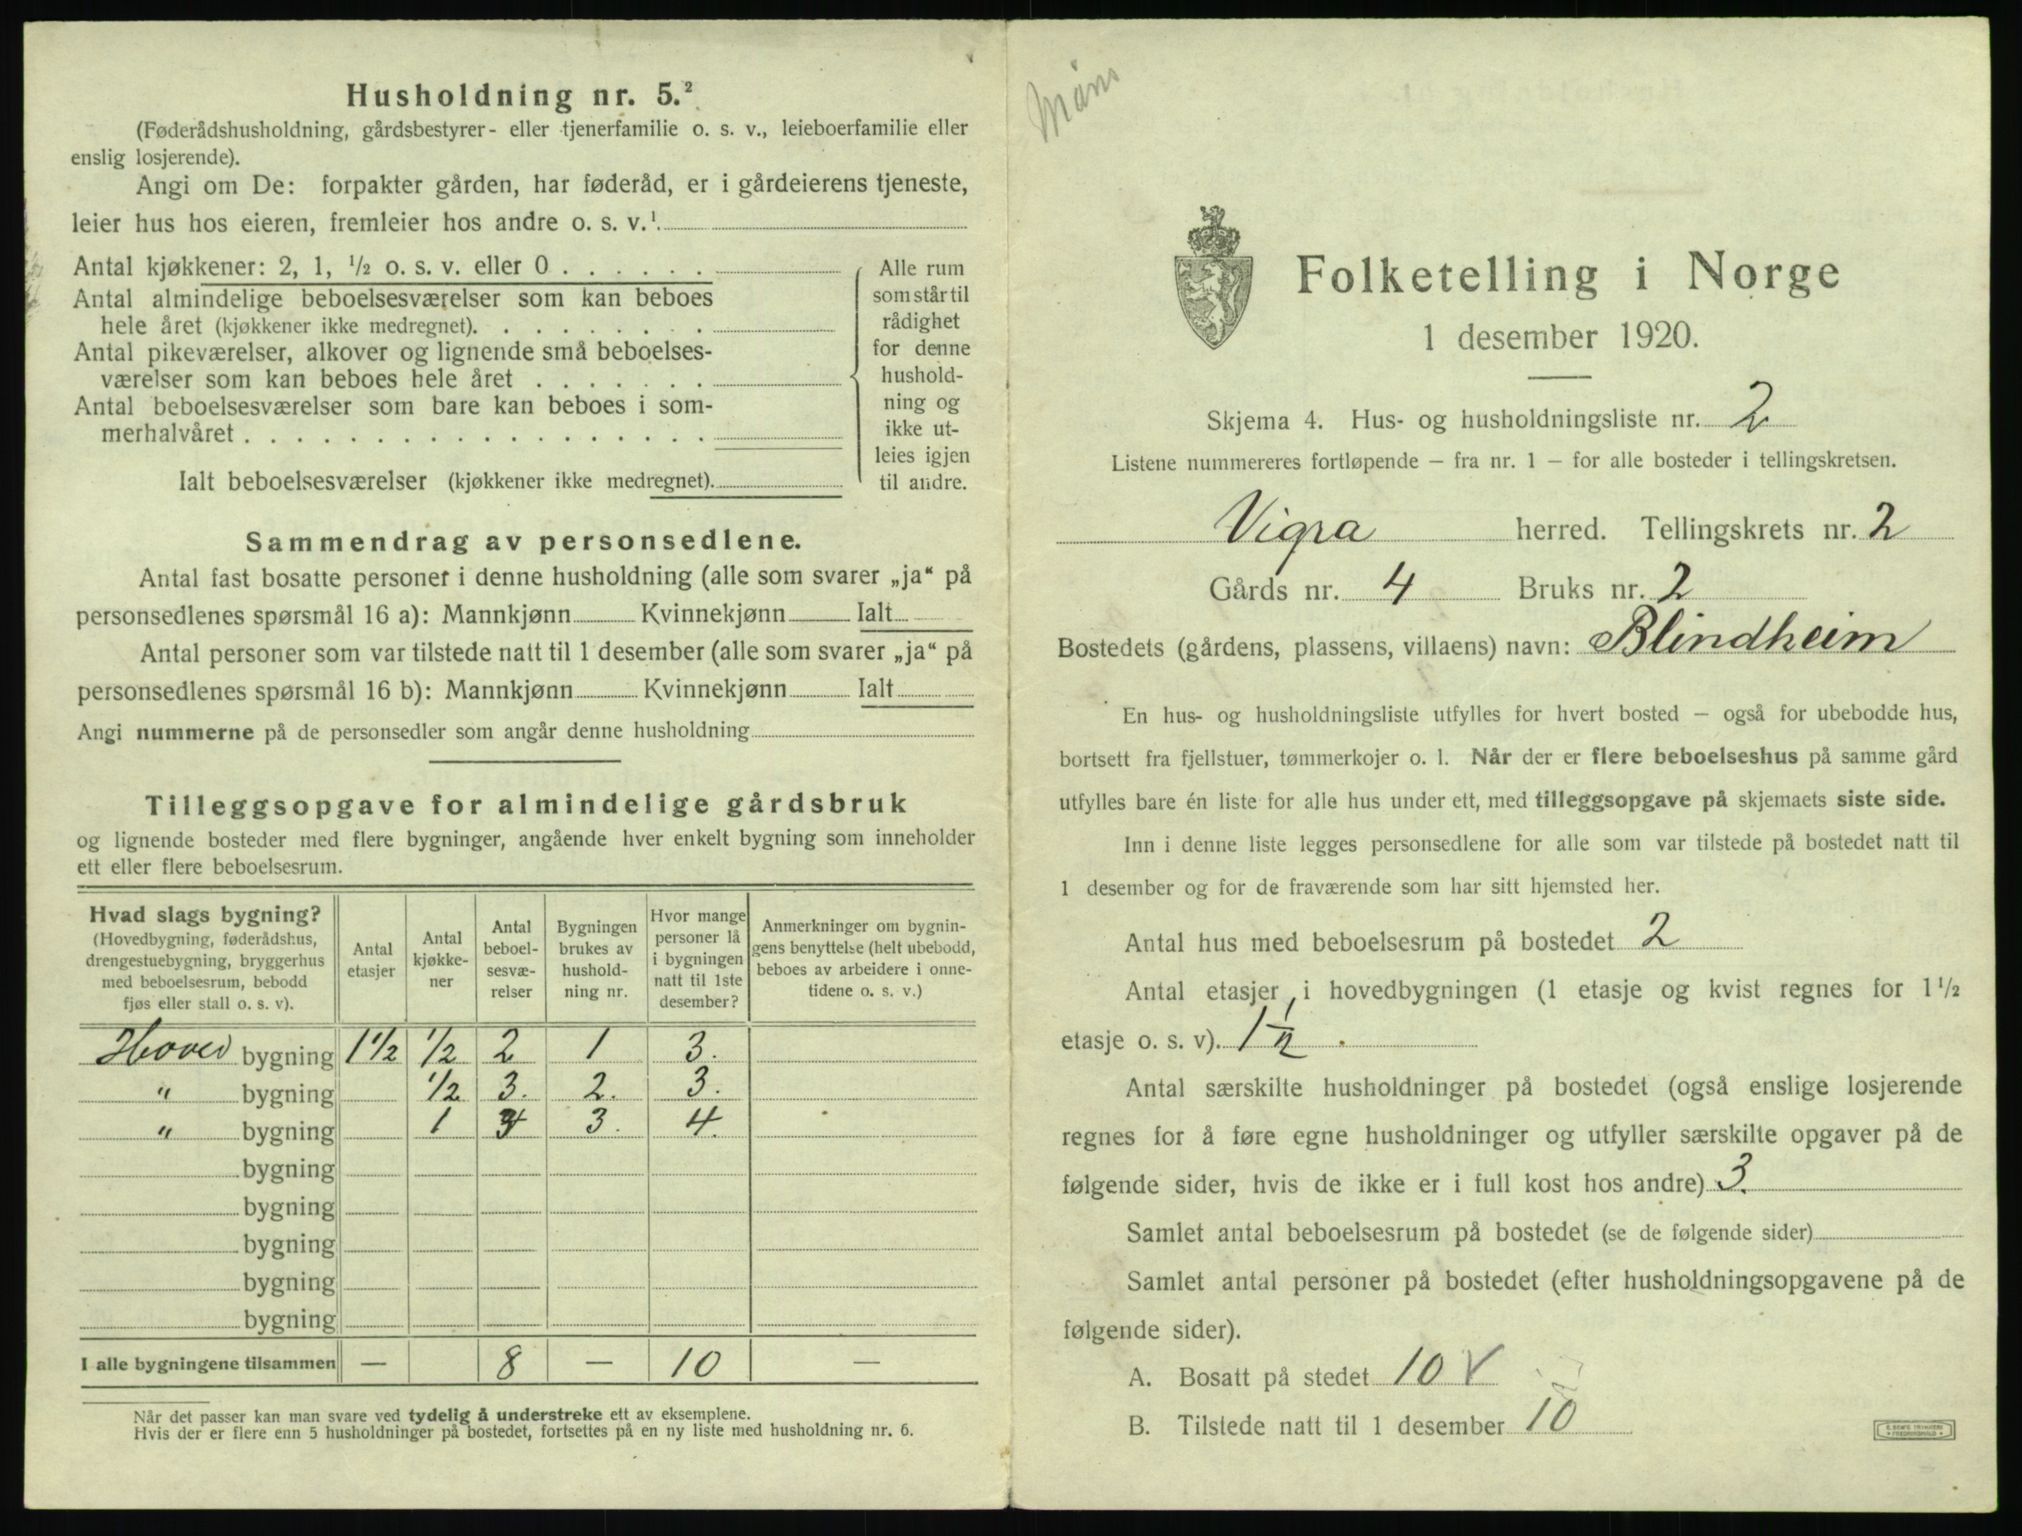 Husholdning nr. 5.²
(Føderådshusholdning, gårdsbestyrer- eller tjenerfamilie o. s. v., leieboerfamilie eller
enslig losjerende).
Angi om De: forpakter gården, har føderåd, er i gårdeierens tjeneste,
leier hus hos eieren, fremleier hos andre o. s. v.¹
Antal kjøkkener: 2, 1, ½ o. s. v. eller 0 . . . . . .
Antal almindelige beboelsesværelser som kan beboes
hele året (kjøkkener ikke medregnet). . . . . . . . .
Antal pikeværelser, alkover og lignende små beboelses-
værelser som kan beboes hele året . . . . . . .
Antal beboelsesværelser som bare kan beboes i som-
merhalvåret . . . . . . . . . . . . . . . . . .
Ialt beboelsesværelser (kjøkkener ikke medregnet).
Alle rum
som står til
rådighet
for denne
hushold-
ning og
ikke ut-
leies igjen
til andre.
Sammendrag av personsedlene.
Antal fast bosatte personer i denne husholdning (alle som svarer „ja“ på
personsedlenes spørsmål 16 a): Mannkjønn Kvinnekjønn Ialt
Antal personer som var tilstede natt til 1 desember (alle som svarer „ja“ på
personsedlenes spørsmål 16 b): Mannkjønn Kvinnekjønn Ialt
Angi nummerne på de personsedler som angår denne husholdning
Tilleggsopgave for almindelige gårdsbruk
og lignende bosteder med flere bygninger, angående hver enkelt bygning som inneholder
ett eller flere beboelsesrum.
Hvad slags bygning?
(Hovedbygning, føderådshus,
drengestuebygning, bryggerhus
med beboelsesrum, bebodd
fjøs eller stall o. s. v).
Antal
etasjer
Antal
kjøkke-
ner
Antal
beboel-
sesvæ-
relser
Bygningen
brukes av
hushold-
ning nr.
Hvor mange
personer lå
i bygningen
natt til 1ste
desember?
Anmerkninger om bygnin-
gens benyttelse (helt ubebodd,
beboes av arbeidere i onne-
tidene o. s. v.)
Hoved bygning 1 1/2 1/2 2 1 3.
" bygning 1/2 3. 2. 3.
" bygning 1 3. 4.
bygning
bygning
bygning
bygning
bygning
I alle bygningene tilsammen — 8 — 10 —
Når det passer kan man svare ved tydelig å understreke ett av eksemplene.
Hvis der er flere enn 5 husholdninger på bostedet, fortsettes på en ny liste med husholdning nr. 6.
Folketelling i Norge
1 desember 1920.
Skjema 4. Hus- og husholdningsliste nr. 2
Listene nummereres fortløpende – fra nr. 1 – for alle bosteder i tellingskretsen.
Vigra herred. Tellingskrets nr. 2
Gårds nr. 4 Bruks nr. 2
Bostedets (gårdens, plassens, villaens) navn: Blindheim
En hus- og husholdningsliste utfylles for hvert bosted – også for ubebodde hus,
bortsett fra fjellstuer, tømmerkojer o. l. Når der er flere beboelseshus på samme gård
utfylles bare én liste for alle hus under ett, med tilleggsopgave på skjemaets siste side.
Inn i denne liste legges personsedlene for alle som var tilstede på bostedet natt til
1 desember og for de fraværende som har sitt hjemsted her.
Antal hus med beboelsesrum på bostedet 2
Antal etasjer i hovedbygningen (1 etasje og kvist regnes for 1½
etasje o. s. v). 1 1/2 .
Antal særskilte husholdninger på bostedet (også enslige losjerende
regnes for å føre egne husholdninger og utfyller særskilte opgaver på de
følgende sider, hvis de ikke er i full kost hos andre) 3.
Samlet antal beboelsesrum på bostedet (se de følgende sider)
Samlet antal personer på bostedet (efter husholdningsopgavene på de
følgende sider).
A. Bosatt på stedet 10 V
B. Tilstede natt til 1 desember 10